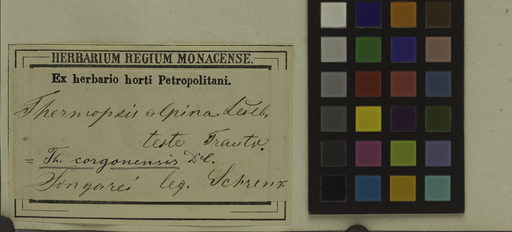 HERBARIUM REGIUM MONACENSE.
Ex herbario horti Petropolitani.
Thermopsis alpina Ledb.
teste Trautv.
= Th. corgonensis DC.
Songarei leg. Schrenk